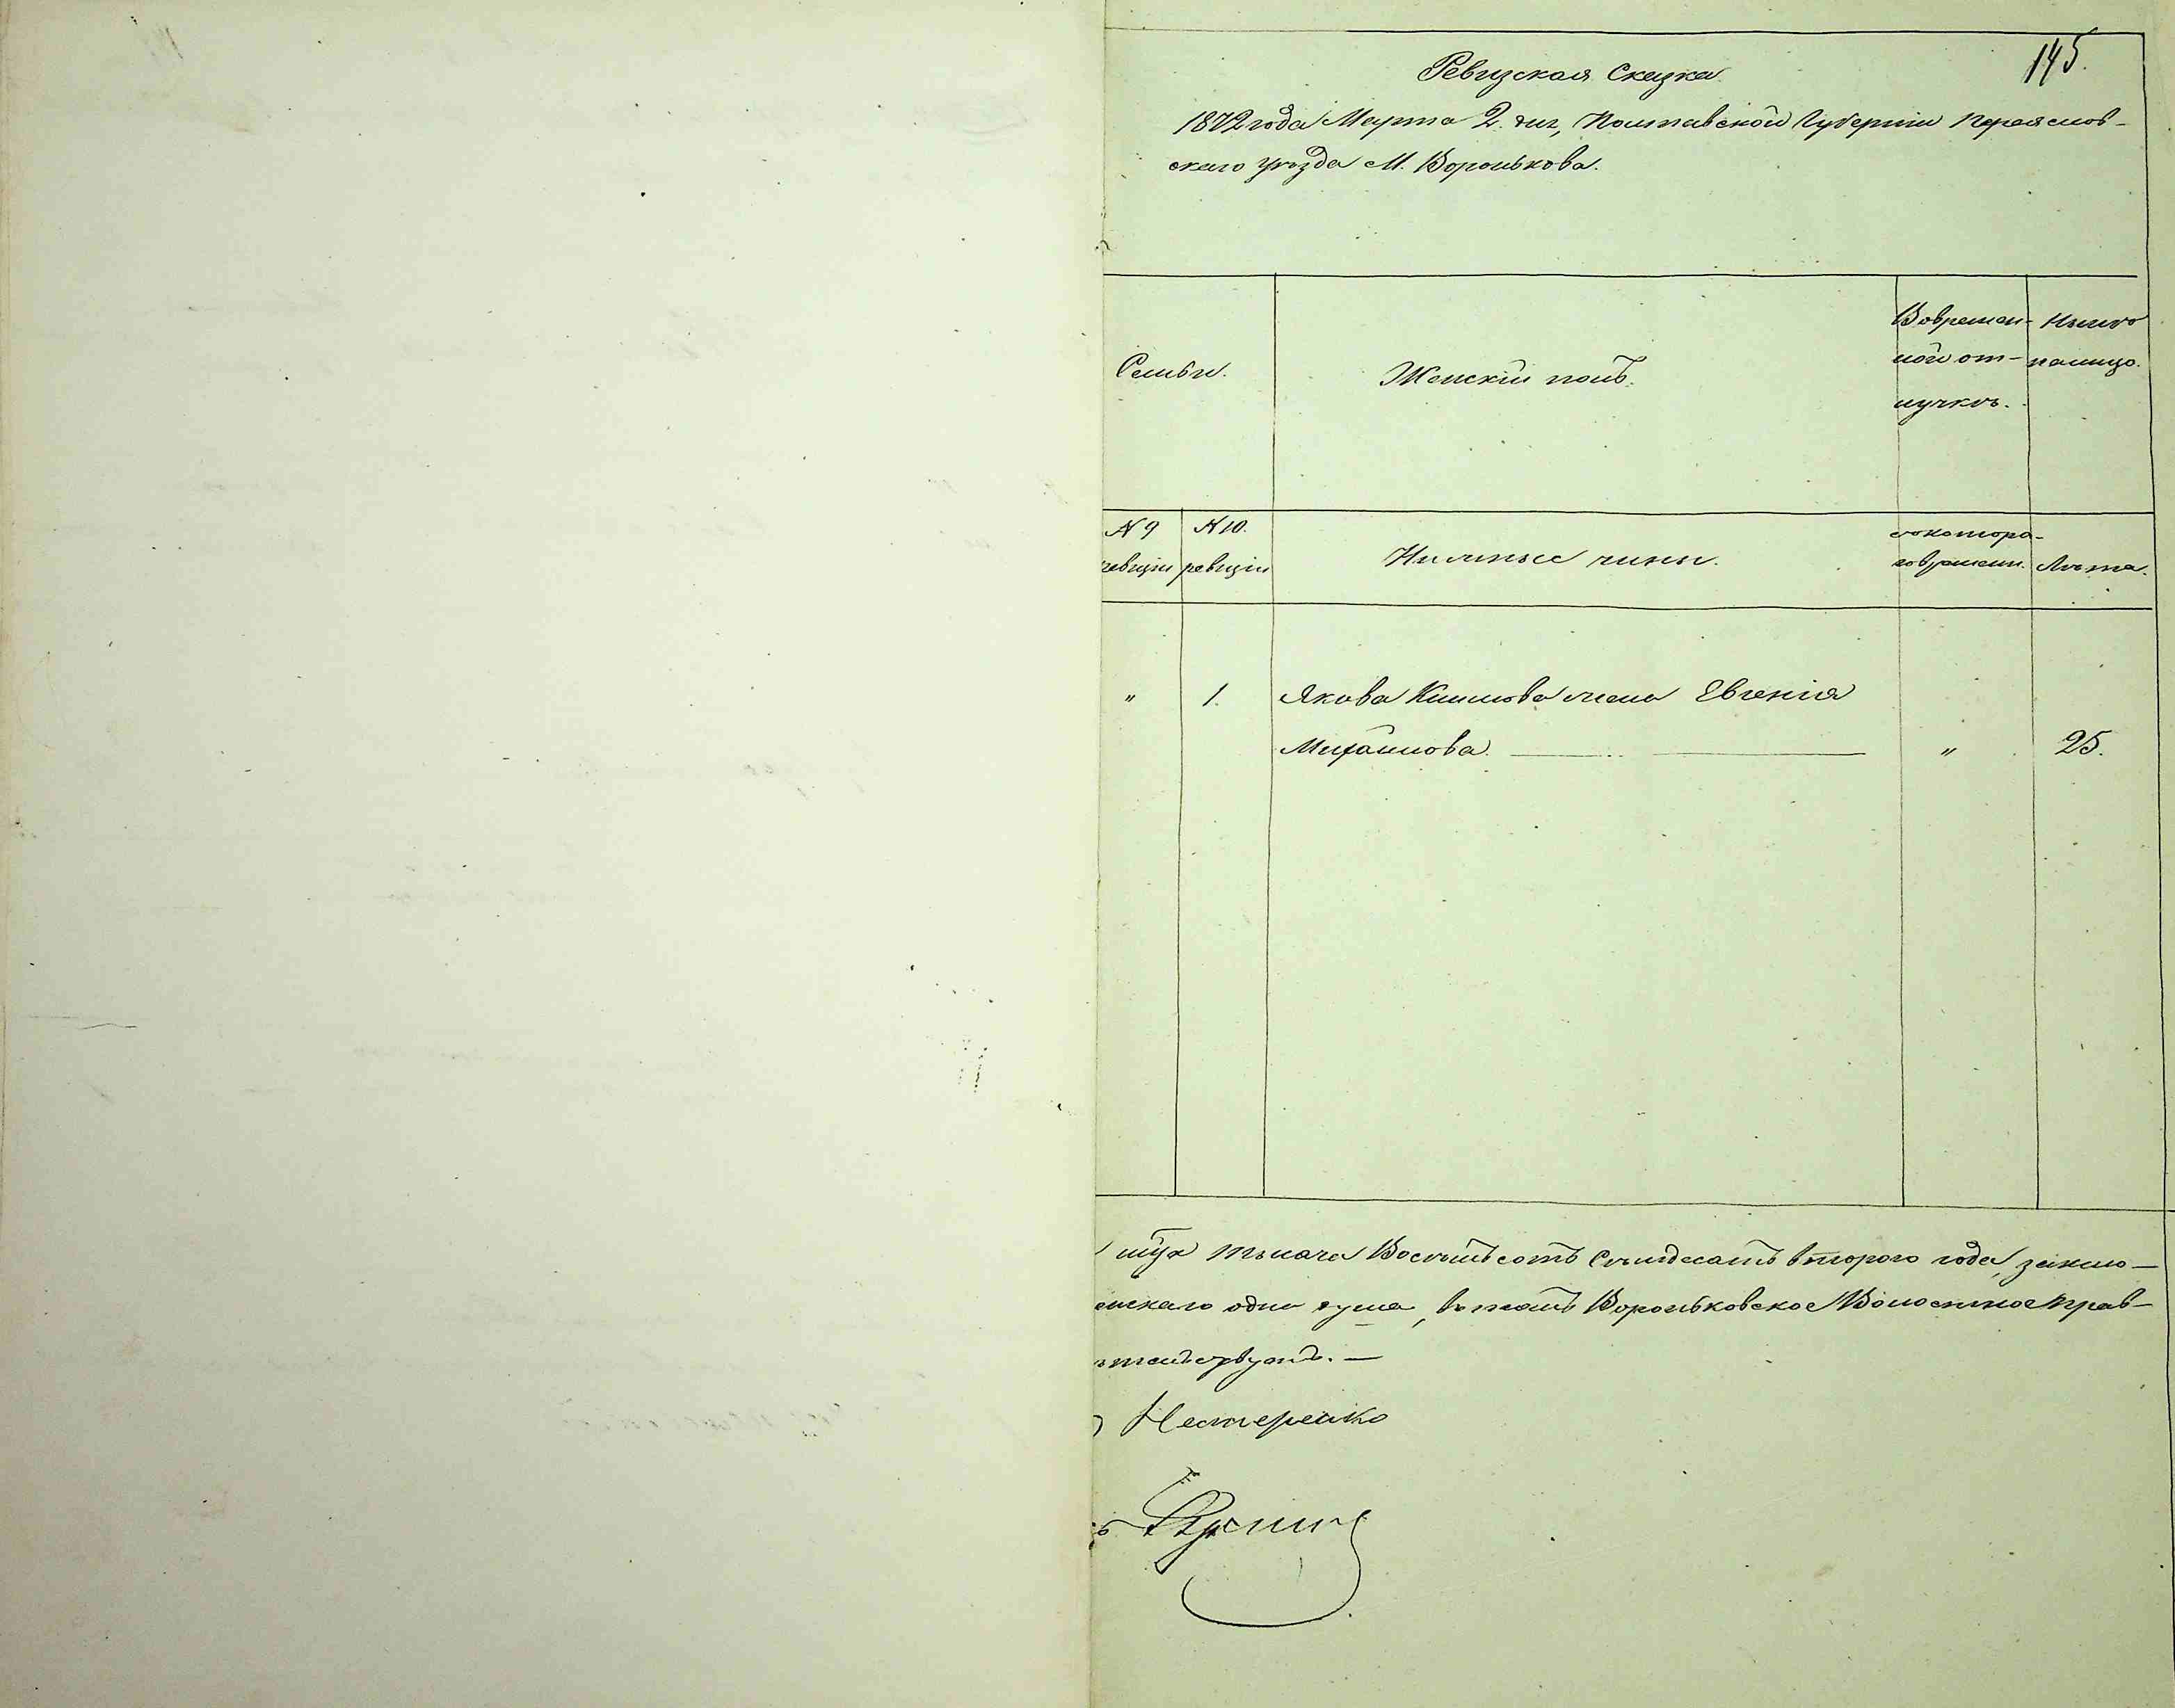 145.
Ревизская Сказка
1872 года Марта 2. дня, Полтавской Губерніи Переяслов-
скаго уѣзда М. Воронькова.
Семьи.
Женскій полъ.
Вовремен-
ной от-
лучкѣ.
Нынѣ
налицо.
N 9
ревизіи
N 10.
ревизіи
Нижные чины.
съкотора-
го времени.
Лѣта.
" 1. Якова Климова жена Евгенія
Михайлова. " 25.
тысяча Восемьсотъ Семьдесятъ втораго года, заклю-
одна душа, въ чемъ Вороньковское Волостное Прав-
Нестеренко